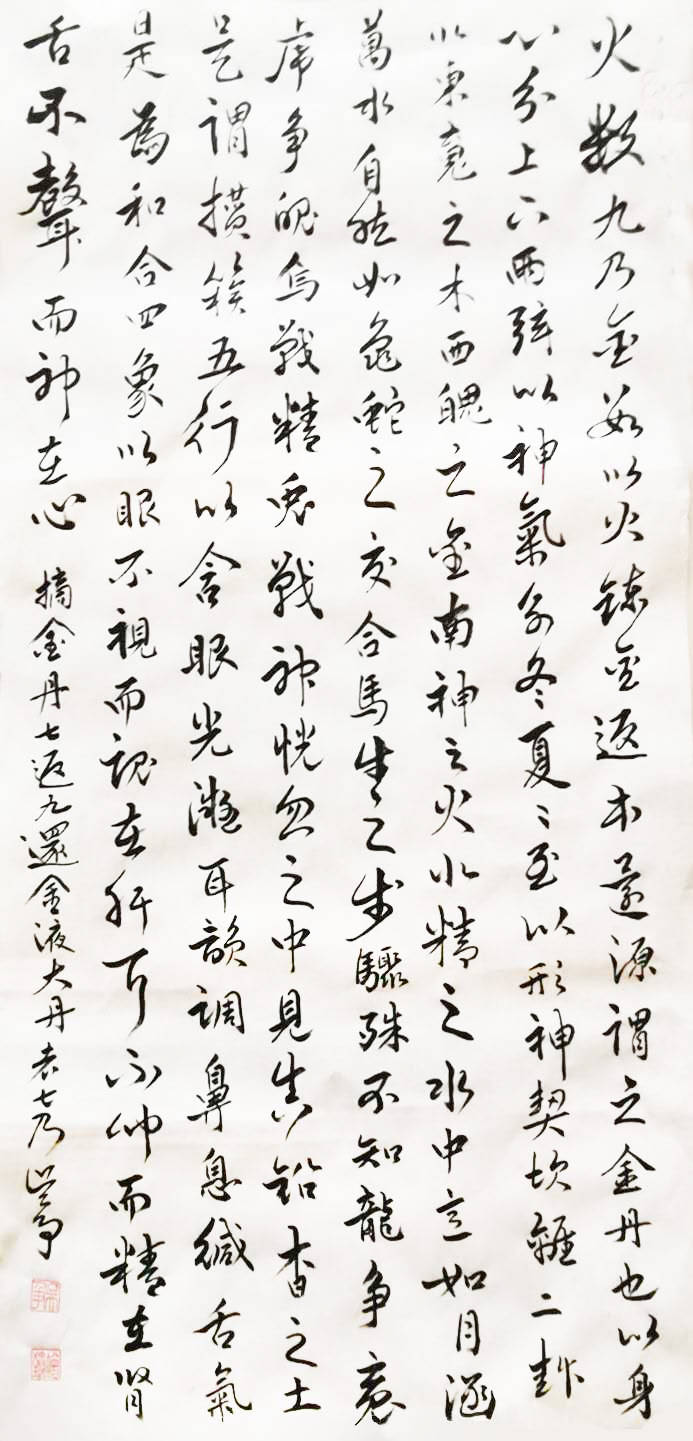 火数九乃金数以火鍊金返本還源謂之金丹也以身
心分上下兩弦以神氣分冬夏二至以形神契坎離二卦
以東魂之木西魄之金南神之火北精之水中意如月涵
萬水自然如龜蛇之交合馬牛之步驟殊不知龍争魂
虎争魄烏戰精兎戰神恍忽之中見真鉛杳之土
是謂攢簇五行以含眼光凝耳韻調鼻息緘舌氣
是為和合四象以眼不視而魂在肝耳不聞而精在腎
舌不聲而神在心 摘金丹七返九還金液大丹